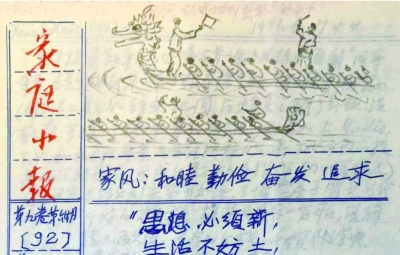 家庭小报
第九卷第
[92]
家风：和睦 勤俭 奋发 追求
"思想必须新，
生活不妨土，